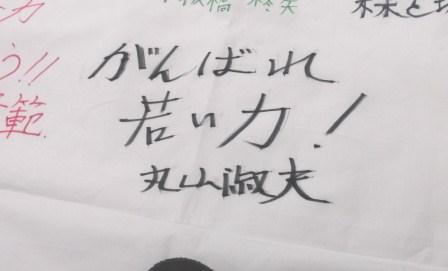 う!!
範
がんばれ
若い力!
丸山淑夫